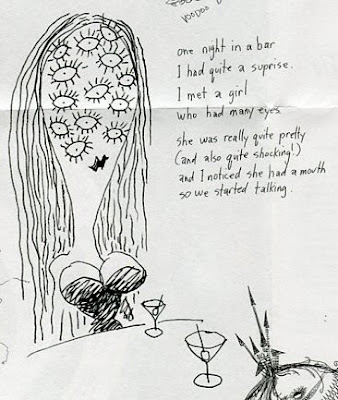 VOODOO
one night in a bar
I had quite a suprise.
I met a girl
who had many eyes.
she was really quite pretty
(and also quite shocking!)
and I noticed she had a mouth
so we started talking.